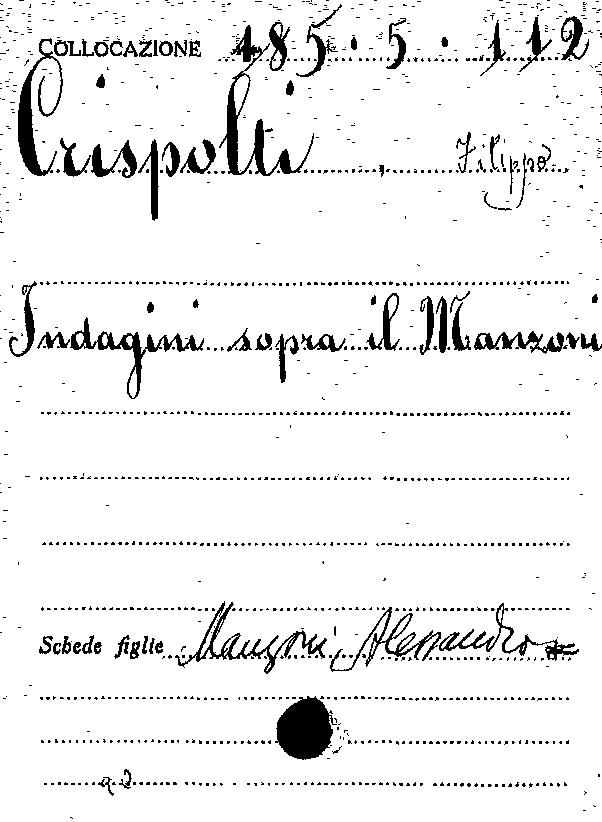 COLLOCAZIONE 485.5.112
Crispolti, Filippo
Indagini sopra il Manzoni
Schede figlie Manzoni, Alessandro =